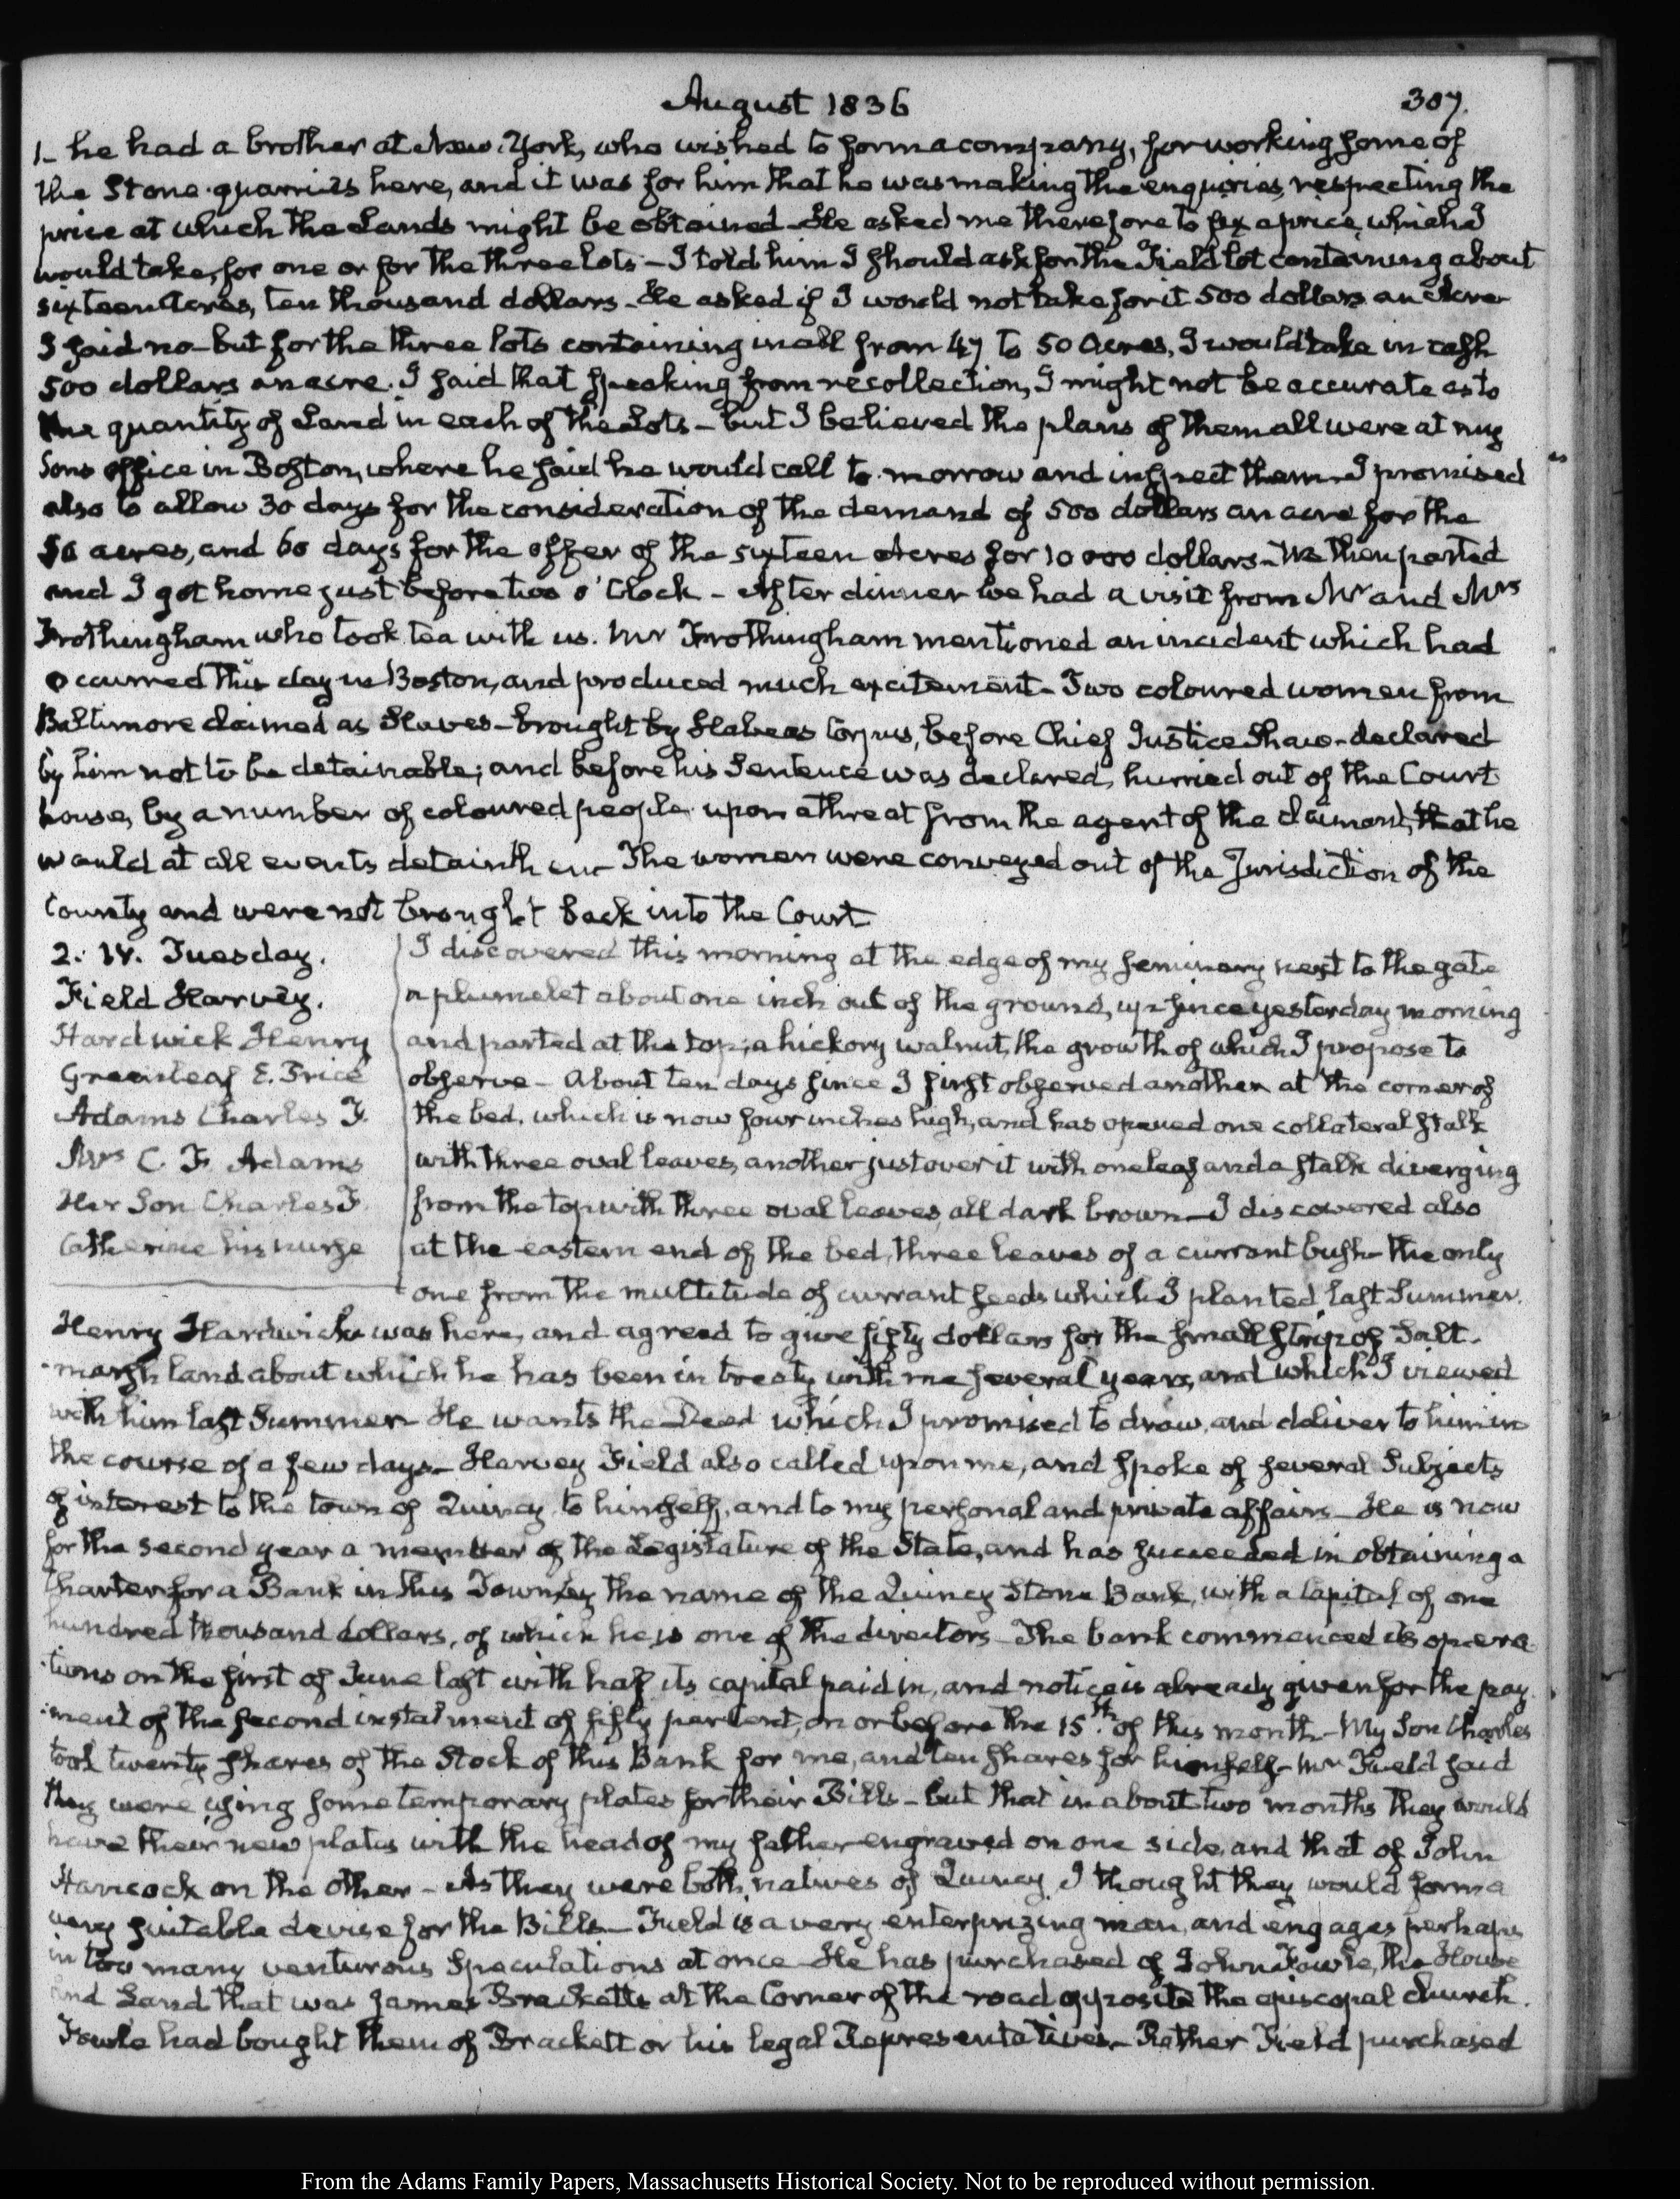 August 1836
307.
1– he had a brother at New-York, who wished to form a company, for working some of
the Stone quarries here, and it was for him that he was making the enquiries, respecting the
price at which the Lands might be obtained – He asked me therefore to fix a price, which I
would take, for one or for the three lots – I told him I should ask for the Field lot containing about
sixteen Acres, ten thousand dollars – He asked if I would not take for it 500 dollars an Acre
I said no – but for the three lots containing in all from 47 to 50 Acres, I would take in cash
500 dollars an acre. I said that speaking from recollection, I might not be accurate as to
the quantity of Land in each of the Lots – but I believed the plans of them all were at my
Sons office in Boston, where he said he would call to-morrow and inspect them – I promised
also to allow 30 days for the consideration of the demand of 500 dollars an acre for the
50 acres, and 60 days for the offer of the sixteen Acres for 10 000 dollars – We then parted
and I got home just before two o'Clock – After dinner we had a visit from Mr and Mrs
Frothingham who took tea with us. Mr Frothingham mentioned an incident which had
occurred this day in Boston, and produced much excitement – Two coloured women from
Baltimore claimed as Slaves – brought by Habeas Corpus, before Chief Justice Shaw – declared
by him not to be detainable; and before his Sentence was declared, hurried out of the Court
house, by a number of coloured people upon a threat from the agent of the claimant, that he
would at all events detain them – The women were conveyed out of the Jurisdiction of the
County and were not brought back into the Court
2. IV. Tuesday.
Field Harvey.
Hardwick Henry
Greenleaf E. Price
Adams Charles F.
Mrs C. F. Adams
Her Son Charles F.
Catherine his nurse
I discovered this morning at the edge of my seminary next to the gate
a plumelet about one inch out of the ground, up since yesterday morning
and parted at the top; a hickory walnut, the growth of which I propose to
observe – About ten days since I first observed another at the corner of
the bed, which is now four inches high, and has opened one collateral stalk
with three oval leaves, another just over it with one leaf and a stalk diverging
from the top with three oval leaves, all dark brown – I discovered also
at the eastern end of the bed, three leaves of a currant bush – the only
one from the multitude of currant seeds which I planted last Summer.
Henry Hardwicke was here, and agreed to give fifty dollars for the small strip of Salt-
-marsh land about which he has been in treaty with me several years, and which I viewed
with him last Summer – He wants the Deed which I promised to draw, and deliver to him in
the course of a few days – Harvey Field also called upon me, and spoke of several Subjects
of interest to the town of Quincy to himself, and to my personal and private affairs – He is now
for the second year a member of the Legislature of the State, and has succeeded in obtaining a
Charter for a Bank in this Town, by the name of the Quincy Stone Bank, with a Capital of one
hundred thousand dollars, of which he is one of the directors – The bank commenced its opera-
-tions on the first of June last with half its capital paid in, and notice is already given for the pay-
-ment of the second instalment of fifty per cent, on or before the 15th of this month – My Son Charles
took twenty shares of the Stock of this Bank for me, and ten shares for himself – Mr Field said
they were using some temporary plates for their Bills – but that in about two months they would
have their new plates with the head of my father engraved on one side, and that of John
Hancock on the other – As they were both natives of Quincy I thought they would form a
very suitable devise for the Bills – Field is a very enterprizing man, and engages perhaps
in too many venturous Speculations at once – He has purchased of John Fowle, the House
and Land that was James Brackett's at the Corner of the road opposite the episcopal church.
Fowle had bought them of Brackett or his legal Representatives – Rather Field purchased
From the Adams Family Papers, Massachusetts Historical Society. Not to be reproduced without permission.